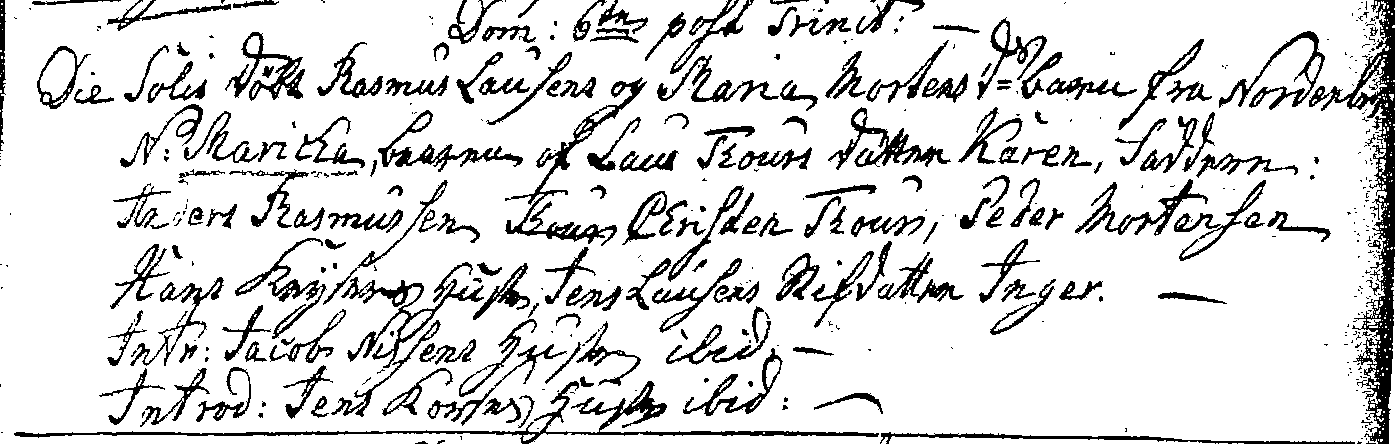 Dom: 6te post Trinit:
Die Solis döbt Rasmus Lausens og Maria Mortens d: barn fra Nordenbr
N: Maricka, baaren af Laus Tours datter Karen, Faddere:
Anders Rasmussen, Christen Tours, Peder Mortensen
Hans Keysers Hustr, Jens Lausens Stifdatter Inger.
Intr: Jacob Nissens Hustr ibid:
Introd: Jens Hustr ibid: